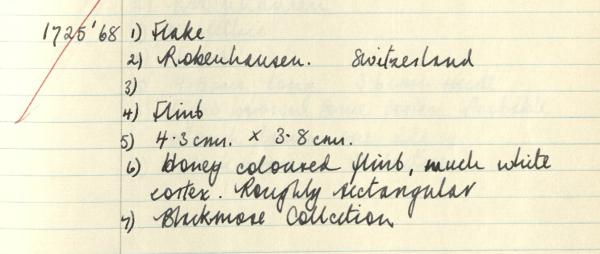 1725'68 1) Flake
2) Robenhausen. Switzerland
3)
4) Flint
5) 4.3cms. x 3.8cms.
6) Honey coloured flint, much white
cortex. Roughly rectangular
7) Blackmore Collection